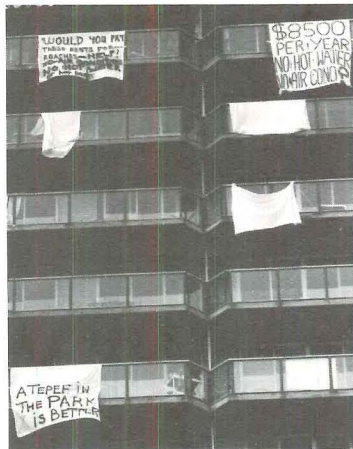 WOULD YOU PAY
THESE RENTS FOR
ROACHES - HELP!
NO AIR
NO
$8500
PER·YEAR
NO·HOT·WATER
NO·AIR COND
A TEPEE IN
THE PARK
iS BETTER